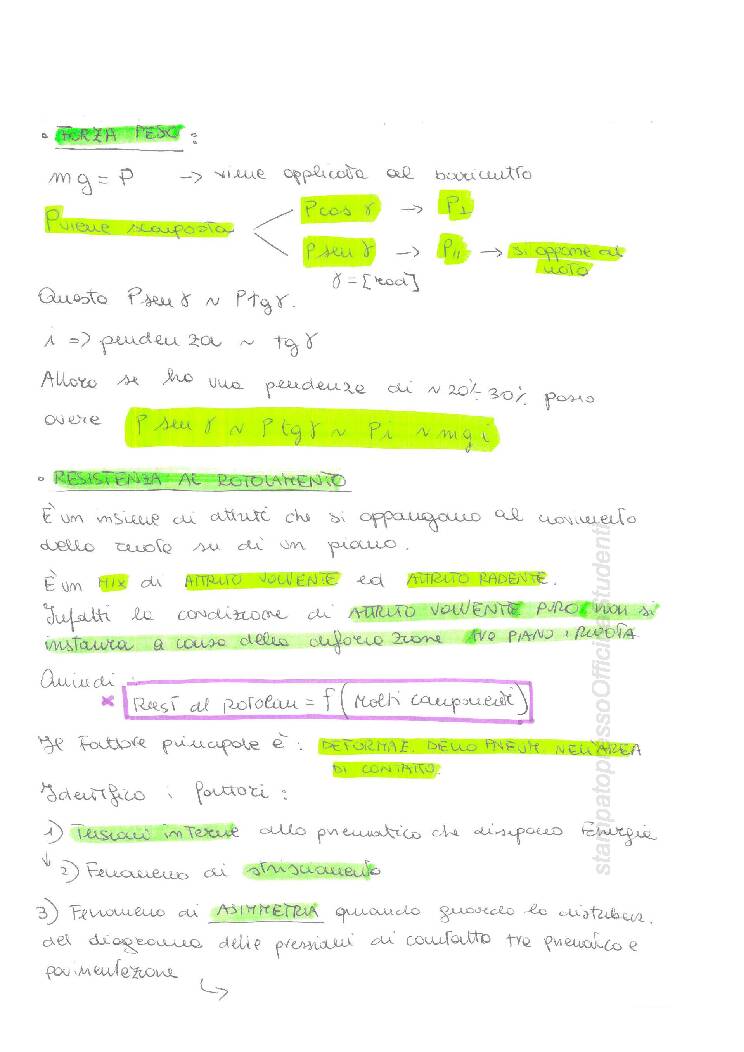 • FORZA PESO :
mg = P → viene applicata al baricentro
P viene scomposta
P cos γ → P⊥
P sen γ → P// → si oppone al moto
γ = [rad]
Questo P sen γ ~ P tg γ.
i => pendenza ~ tg γ
Allora se ho una pendenza di ~ 20%-30% posso
avere P sen γ ~ P tg γ ~ P i ~ mg i
• RESISTENZA AL ROTOLAMENTO
È un insieme di attriti che si oppongano al movimento
della ruota su di un piano.
È un MIX di ATTRITO VOLVENTE ed ATTRITO RADENTE.
Infatti la condizione di ATTRITO VOLVENTE PURO non si
instaura a causa della deformazione tra PIANO e RUOTA
Quindi :
* Resist al rotolam = f (Molti componenti)
Il Fattore principale è : DEFORMAZ. DELLO PNEUM. NELL'AREA
DI CONTATTO.
Identifico i fattori :
1) Tensioni interne allo pneumatico che dissipano Energia
↓ 2) Fenomeno di strisciamento
3) Fenomeno di ASIMMETRIA quando guardo la distribuz.
del diagramma delle pressioni di contatto tra pneumatico e
pavimentazione
↳
stampatopressoOfficinaStudenti